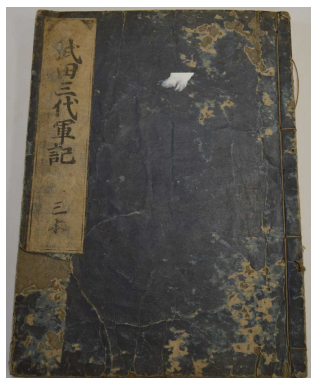 武田三代軍記
三